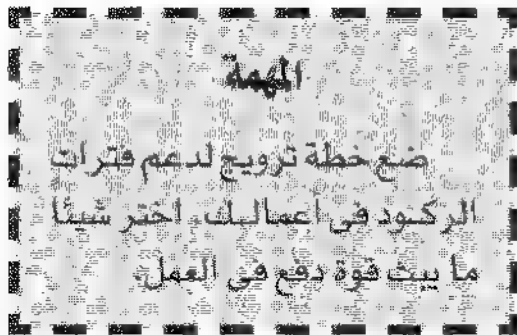 المهمة
ضع خطة ترويج لدعم فترات
الركود فى أعمالك. اختر شيئا
ما يبث قوة دفع فى العمل.